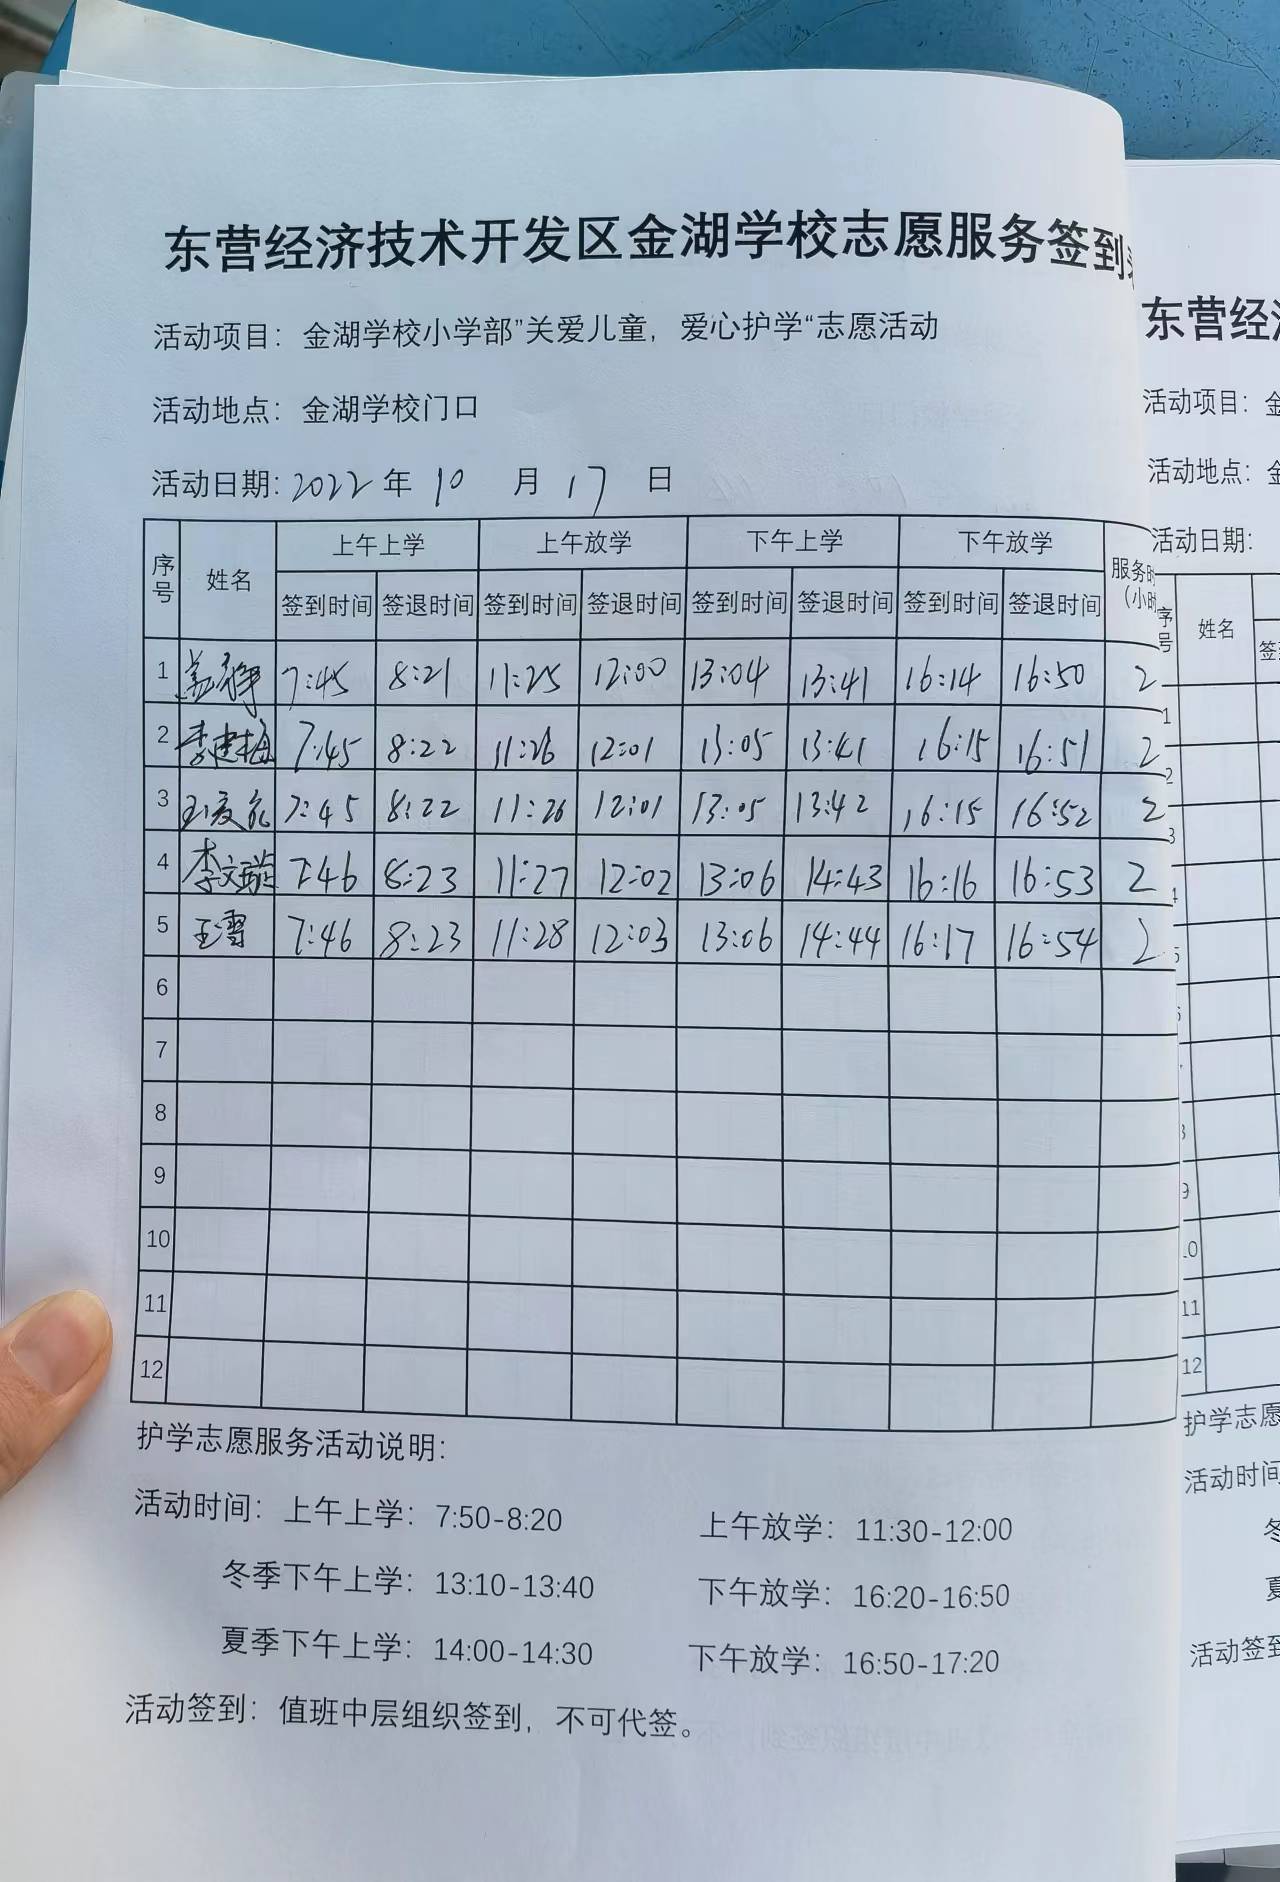 东营经济技术开发区金湖学校志愿服务签到
活动项目：金湖学校小学部”关爱儿童，爱心护学“志愿活动
活动地点：金湖学校门口
活动日期:2022年10月17日
序号 姓名 上午上学 上午放学 下午上学 下午放学 服务时
(小时
签到时间 签退时间 签到时间 签退时间 签到时间 签退时间 签到时间 签退时间
1 7:45 8:21 11:25 12:00 13:04 13:41 16:14 16:50 2
2 李建梅 7:45 8:22 11:26 12:01 13:05 13:41 16:15 16:51 2
3 7:45 8:22 11:26 12:01 13:05 13:42 16:15 16:52 2
4 李文璇 7:46 8:23 11:27 12:02 13:06 14:43 16:16 16:53 2
5 王雪 7:46 8:23 11:28 12:03 13:06 14:44 16:17 16:54 2
6
7
8
9
10
11
12
护学志愿服务活动说明:
活动时间：上午上学：7:50-8:20 上午放学：11:30-12:00
冬季下午上学：13:10-13:40 下午放学：16:20-16:50
夏季下午上学：14:00-14:30 下午放学：16:50-17:20
活动签到：值班中层组织签到，不可代签。
东营经
活动项目：金
活动地点：金
活动日期:
序号 姓名
1
2
3
11
12
护学志愿
活动时间
冬
夏
活动签到